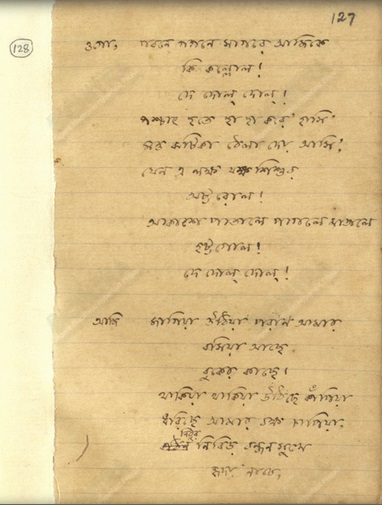 127
128
ওগো, পবনে গগনে সাগরে আজিকে
কি কল্লোল!
দে দোল্ দোল্!
পশ্চাৎ হতে হাহা করে হাসি
মত্ত ঝটিকা ঠেলা দেয় আসি,
যেন এ লক্ষ যক্ষশিশুর
অট্টরোল!
আকাশে পাতালে পাগলে মাতালে
হট্টগোল!
দে দোল্ দোল্!
আজি জাগিয়া উঠিয়া পরাণ আমার
বসিয়া আছে
বুকের কাছে।
থাকিয়া থাকিয়া উঠিছে কাঁপিয়া
ধরিছে আমার বক্ষ চাপিয়া,
নিঠুর
নিবিড় বন্ধনসুখে
হৃদয় নাচে,